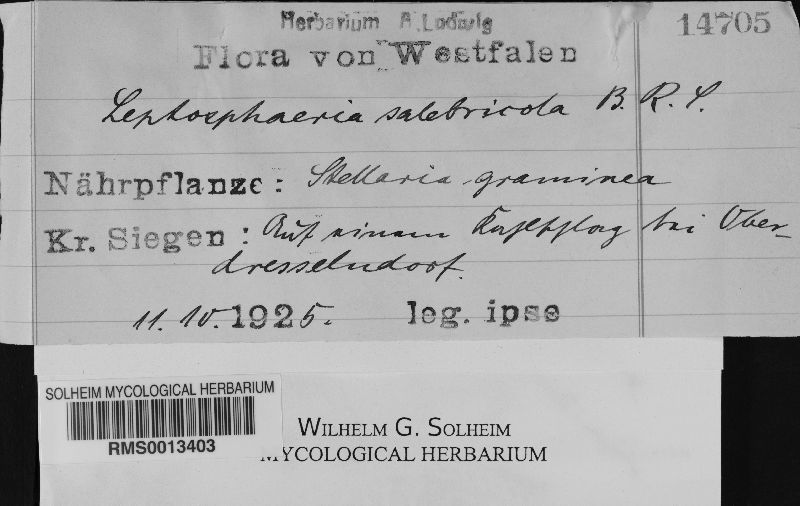 Herbarium A. Ludwig
14705
Flora von Westfalen
Leptosphaeria salebricola B. R. S.
Nährpflanze: Stellaria graminea
Kr. Siegen: Auf einem Kahlschlag bei Ober-
dresselndorf.
11. IV. 1925. leg. ipse
SOLHEIM MYCOLOGICAL HERBARIUM
RMS0013403
WILHELM G. SOLHEIM
MYCOLOGICAL HERBARIUM